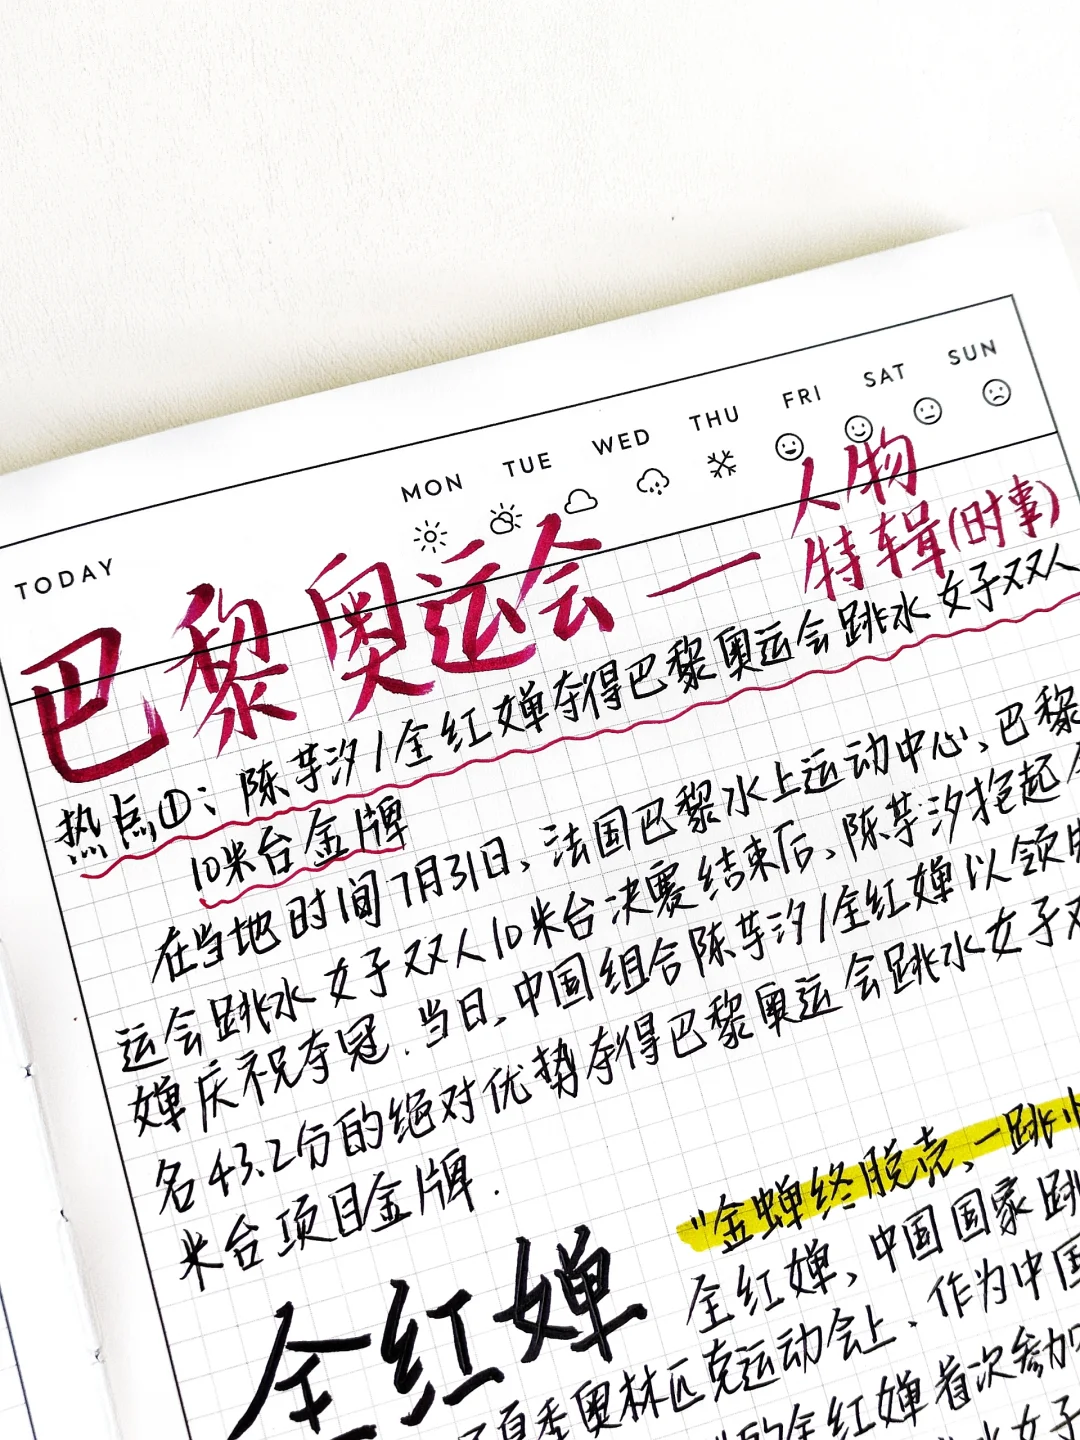 MON TUE WED THU FRI SAT SUN
TODAY
巴黎奥运会一人物
特辑(时事)
热点①:陈芋汐/全红婵夺得巴黎奥运会跳水女子双人
10米台金牌
在当地时间7月31日、法国巴黎水上运动中心、巴黎
运会跳水女子双人10米台决赛结束后、陈芋汐抱起全
婵庆祝夺冠.当日、中国组合陈芋汐/全红婵以领先
名43.2分的绝对优势夺得巴黎奥运会跳水女子双
米台项目金牌.
全红婵
"金蝉终脱壳、一跳
全红婵、中国国家跳
夏季奥林匹克运动会上、作为中国
的全红婵首次参加
水女子